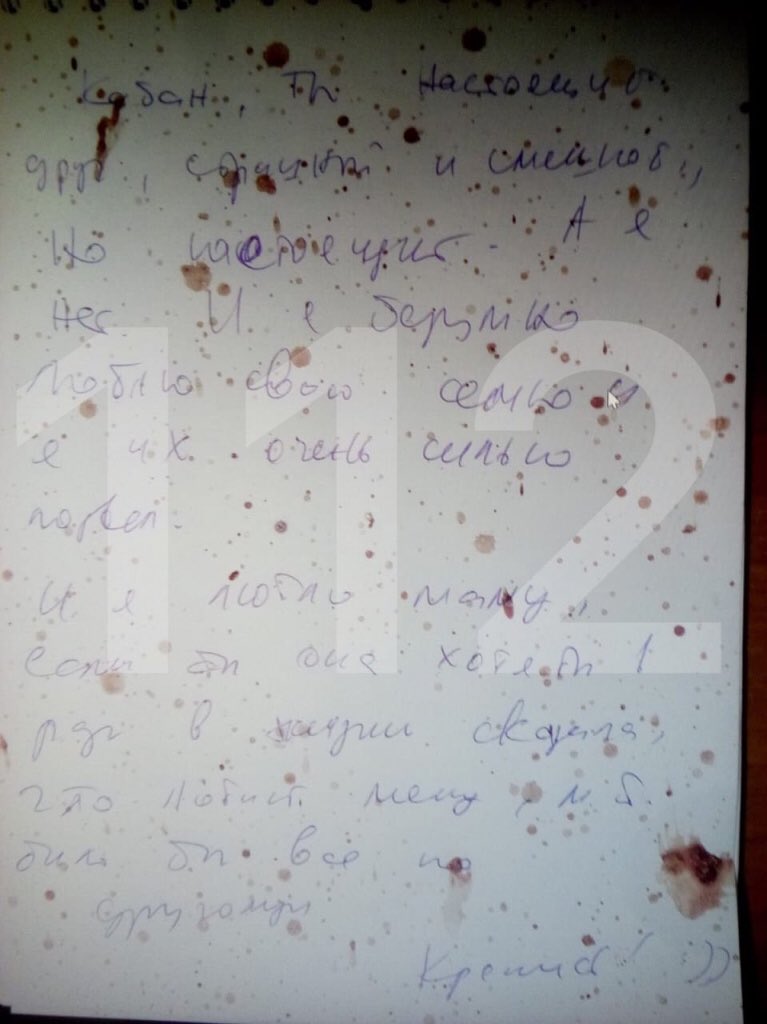 Кабан, ты настоящий
друг, страшный и смешной,
но настоящий. А я
нет. И я безумно
люблю свою семью и
я их очень сильно
подвел.
И я люблю маму,
если бы она хотя бы 1
раз в жизни сказала,
что любит меня, м.б.
было бы все по
другому
))
112